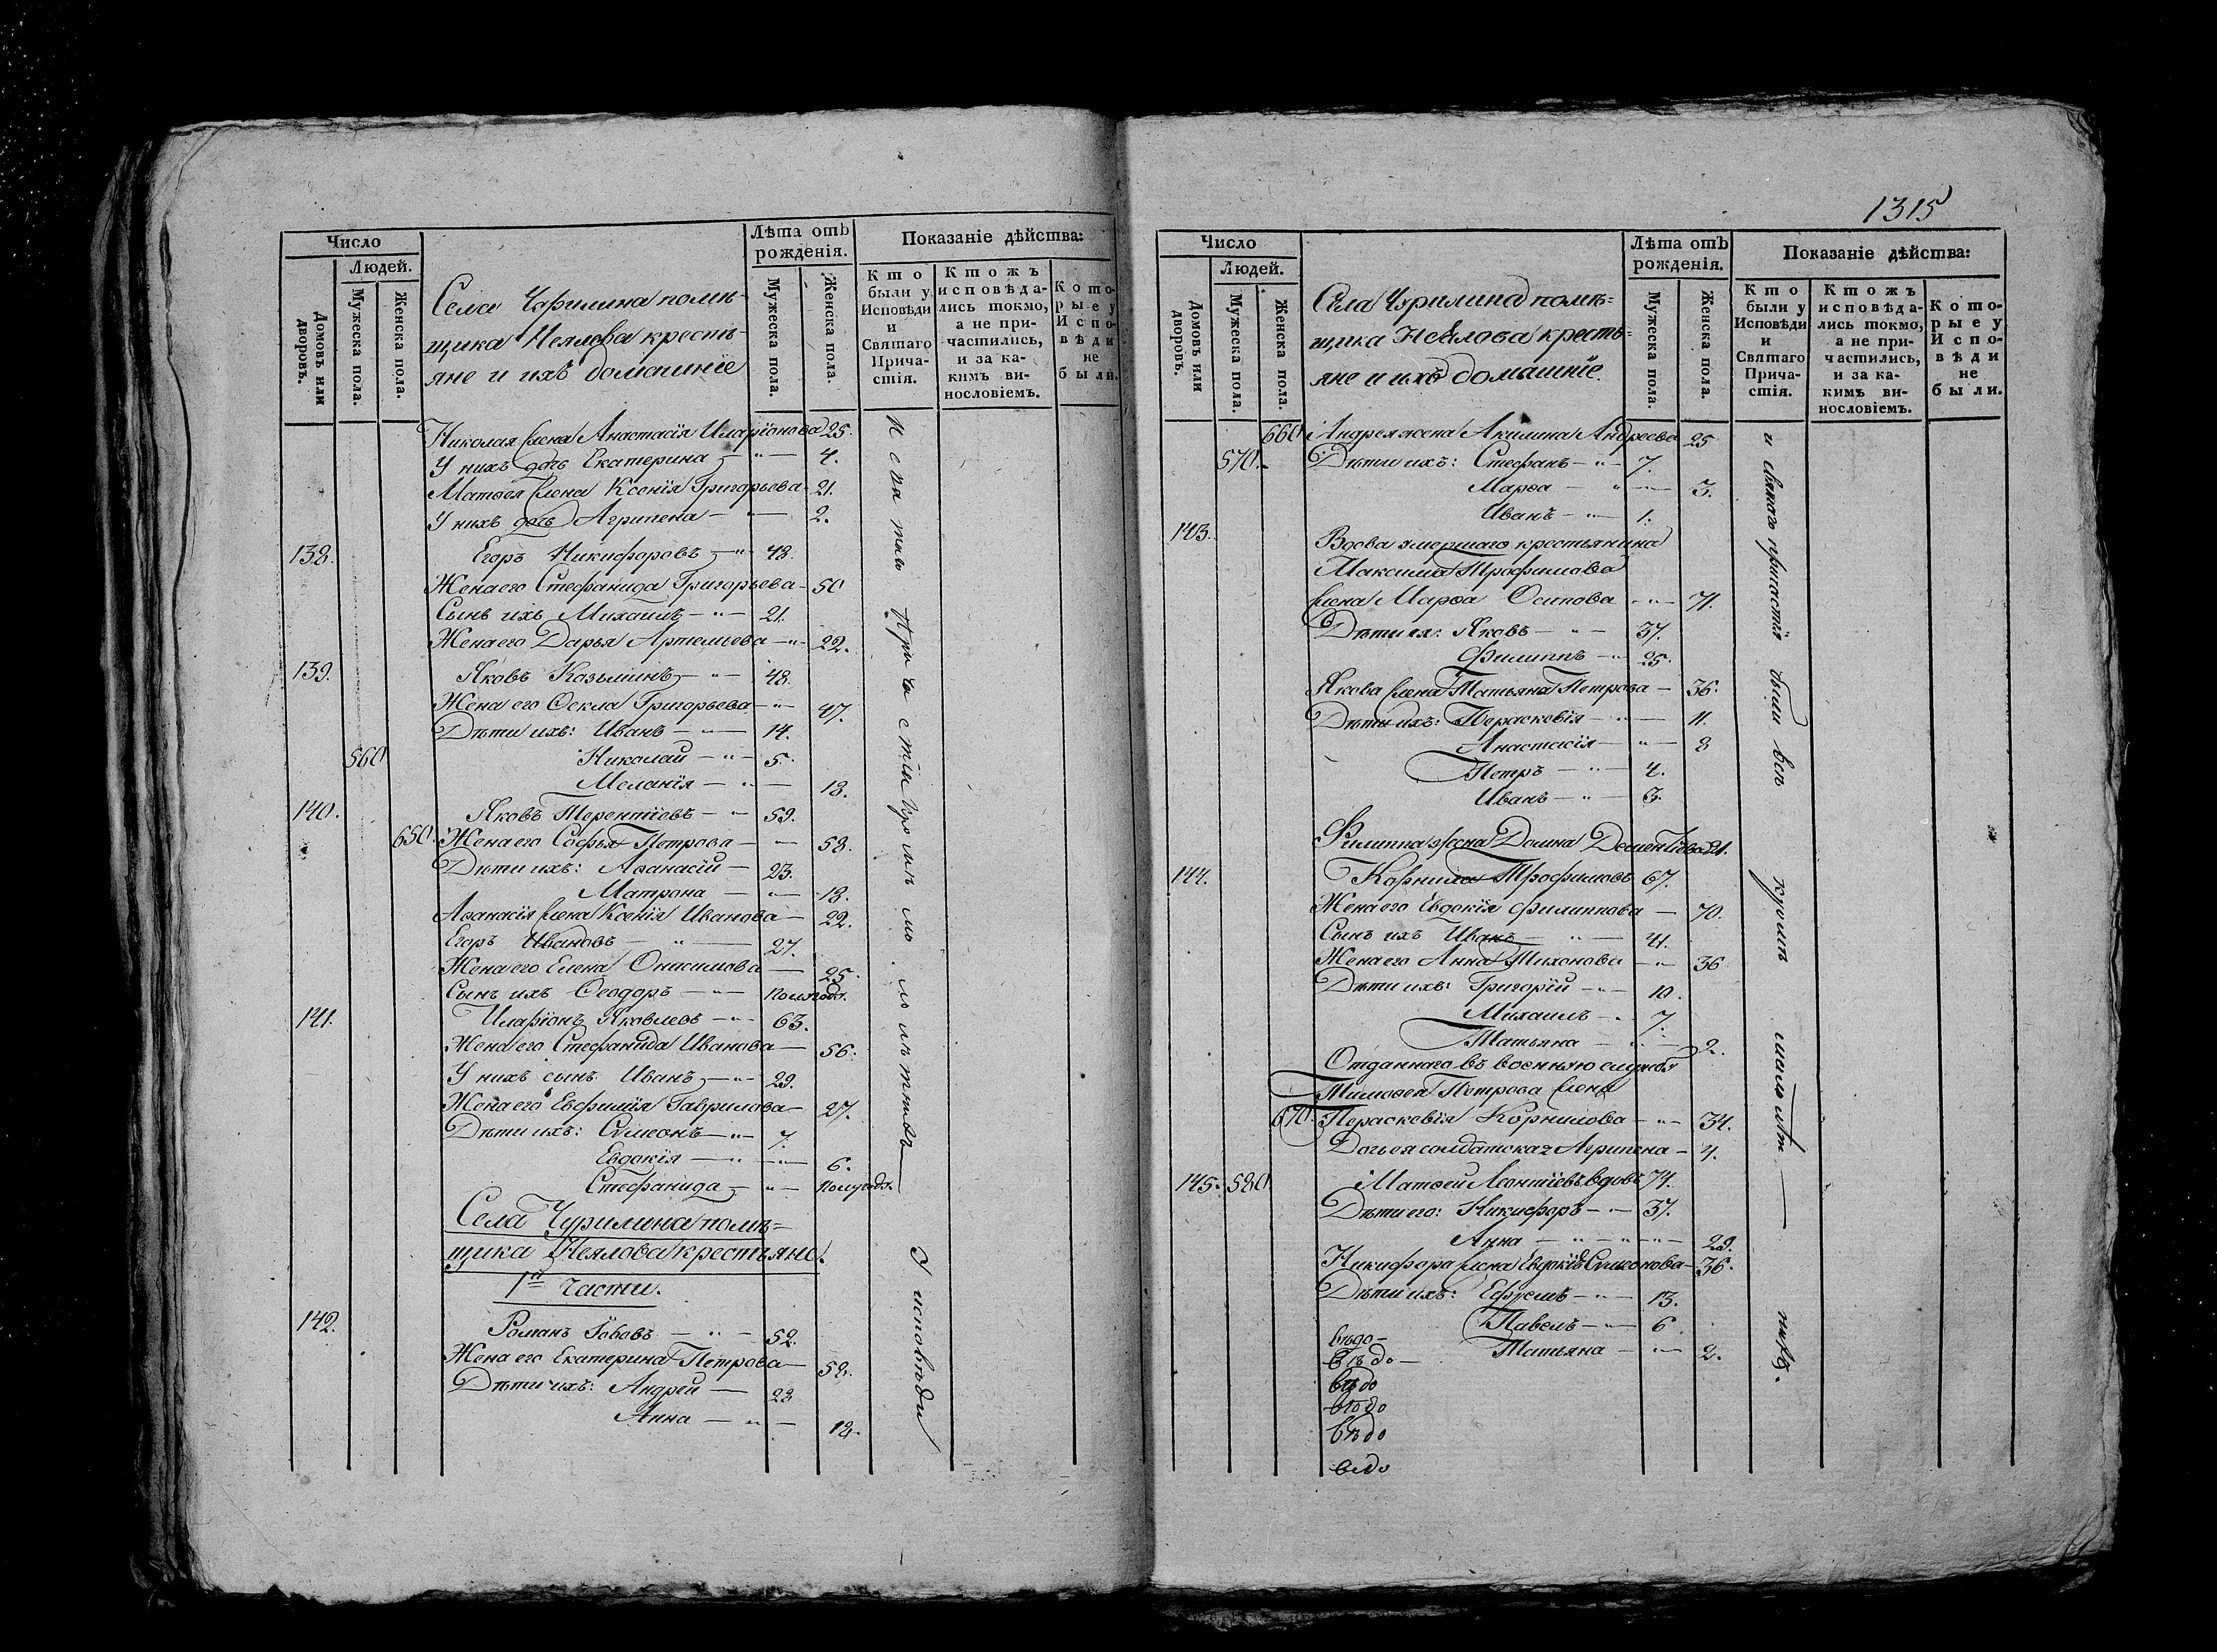 Число
Людей.
Домовъ или дворовъ.
Мужеска пола.
Женска пола.
Села Чурилина помѣ-
щика Неялова кресть-
яне и ихъ домашніе
Лѣта отъ рожденія.
Мужеска пола.
Женска пола.
Показаніе дѣйства:
Кто были у Исповѣди и Святаго Прича-стія.
Ктожъ исповѣда-лись токмо, а не при-частились, и за ка-кимъ ви-нословіемъ.
Кото-рые у Испо-вѣди не были.
Николая жена Анастасія Иларіонова 25.
У нихъ дочь Екатерина — " — 4.
Матѳея жена Ксенія Григорьева - 21.
У нихъ дочь Агрипена — " — 2.
138. Егоръ Никифоровъ — " 48.
Жена его Стефанида Григорьева - 50
Сынъ ихъ Михаилъ — " — 21.
Жена его Дарья Артемьева — " - 22.
139. Яковъ Козьминъ — " — 48.
Жена его Ѳекла Григорьева — " — 47.
Дѣти ихъ: Иванъ — " — 14.
560 Николай — " — 5.
Меланія — " — 18.
140. Яковъ Терентіевъ — " 59.
650. Жена его Софья Петрова — " — 58.
Дѣти ихъ: Аѳанасій — 23.
Матрона — " — 18.
Аѳанасія жена Ксенія Иванова — 22.
Егоръ Ивановъ — " — 27.
Жена его Елена Онисимова — 25.
Сынъ ихъ Ѳеодоръ — " — полгода.
141. Иларіонъ Яковлевъ — " - 63.
Жена его Стефанида Иванова — 56.
У нихъ сынъ Иванъ — " - 29.
Жена его Евфимія Гаврилова — 27.
Дѣти ихъ: Сѵмеонъ — " — 7.
Евдокія — " — 6.
Стефанида — " — полугода.
Села Чурилина помѣ-
щика Неялова крестьяне.
1й части.
142. Романъ Іововъ — " — 52.
Жена его Екатерина Петрова — 52.
Дѣти ихъ: Андрей — 28
Анна — " — 12.
Исватаго Причастія кромѣ мо. ло лѣтнхъ
У исповѣди
1315
Число
Людей.
Домовъ или дворовъ.
Мужеска пола.
Женска пола.
Села Чурилина помѣ-
щика Неѣлова кресть-
яне и ихъ домашніе.
Лѣта отъ рожденія.
Мужеска пола.
Женска пола.
Показаніе дѣйства:
Кто были у Исповѣди и Святаго Прича-стія.
Ктожъ исповѣда-лись токмо, а не при-частились, и за ка-кимъ ви-нословіемъ.
Кото-рые у Испо-вѣди не были.
660 Андрея жена Акилина Андреева 25
570. Дѣти ихъ: Стефанъ — " — 7.
Марѳа — " — 3.
Иванъ — " — 1.
143. Вдова умершаго крестьянина
Максима Трофимова
жена Марѳа Осипова — " — 71.
Дѣти ея: Яковъ — " — 37.
Филиппъ — " 25.
Якова жена Татьяна Петрова — 36.
Дѣти ихъ: Параскевія — " — 11.
Анастасія — " — 8
Петръ — " — 4.
Иванъ — " — 3.
Филиппа жена Домна Дементіева 21.
144. Корнила Трофимовъ 67.
Жена его Евдокія Филиппова — 70.
Сынъ ихъ Иванъ — " — 41.
Жена его Анна Тихонова — " — 36
Дѣти ихъ: Григорій — " — 10.
Михаилъ — " 7.
Татьяна — " — 2.
Отданнаго въ военную службу
Тимоѳея Петрова жена
670. Параскевія Корнилова — " — 34.
Дочь ея солдатская Агрипена — 4.
145. 580. Матѳей Леонтіевъ вдовъ 74.
Дѣти его: Никифоръ — " — 37.
Анна — " — " — 29.
Никифора жена Евдокія Сѵмеонова — 36.
Дѣти ихъ: Ефремъ — " — 13.
Павелъ — " — 6
Татьяна — " — 2.
и святаго причастія были всѣ кромѣ малолѣт — нихъ.